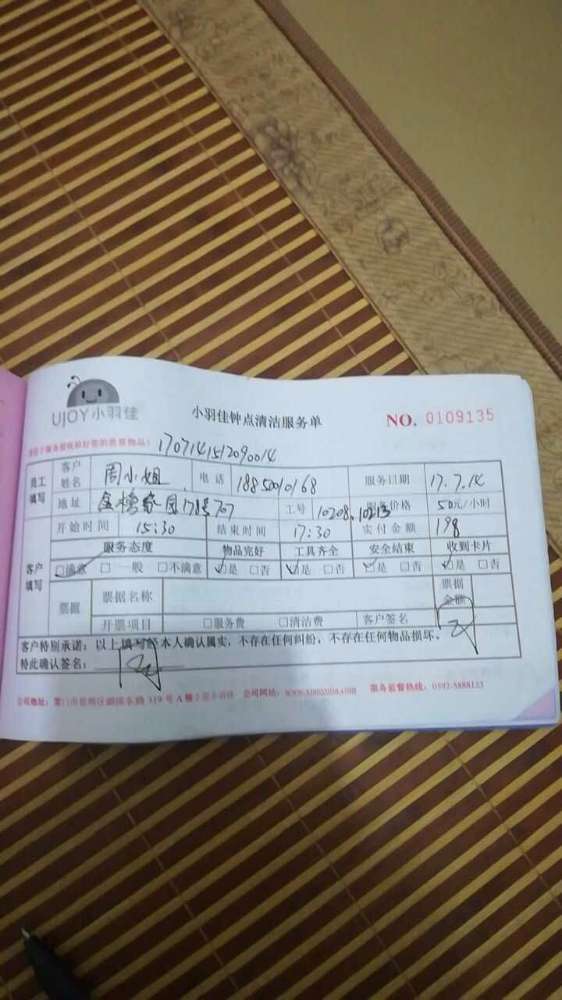 UJOY小羽佳
小羽佳钟点清洁服务单
NO. 0109135
1707141512090014
员工填写 客户姓名 周小姐 电话 18850010168 服务日期 17.7.14
地址 17号707 工号 10208、10213 价格 50元/小时
开始时间 15:30 结束时间 17:30 实付金额 198
客户填写 服务态度 物品完好 工具齐全 安全结束 收到卡片
□满意 □一般 □不满意 □是 □否 □是 □否 □是 □否 □是 □否
票据 票据名称 票据金额
开票项目 □服务费 □清洁费 客户签名
客户特别承诺：以上填写经本人确认属实，不存在任何纠纷，不存在任何物品损坏。
特此确认签名：
公司地址： 319号A幢 公司网站： 服务监督热线：0592-5888123